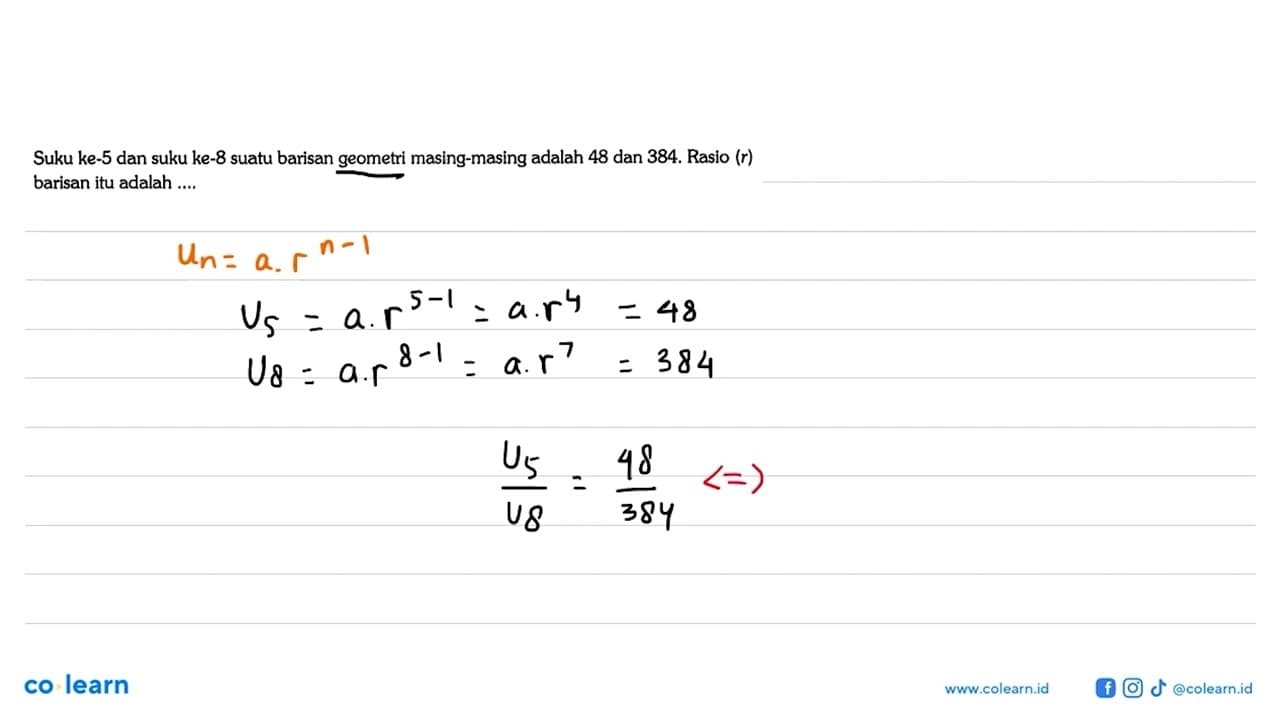 Suku ke-5 dan suku ke-8 suatu barisan geometri masing-masing adalah 48 dan 384. Rasio (r)
barisan itu adalah ....
Un = a. r^n-1
U5 = a. r^5-1 = a. r^4 = 48
U8 = a. r^8-1 = a. r^7 = 384
U5/U8 = 48/384 <=>
co learn
www.colearn.id @colearn.id